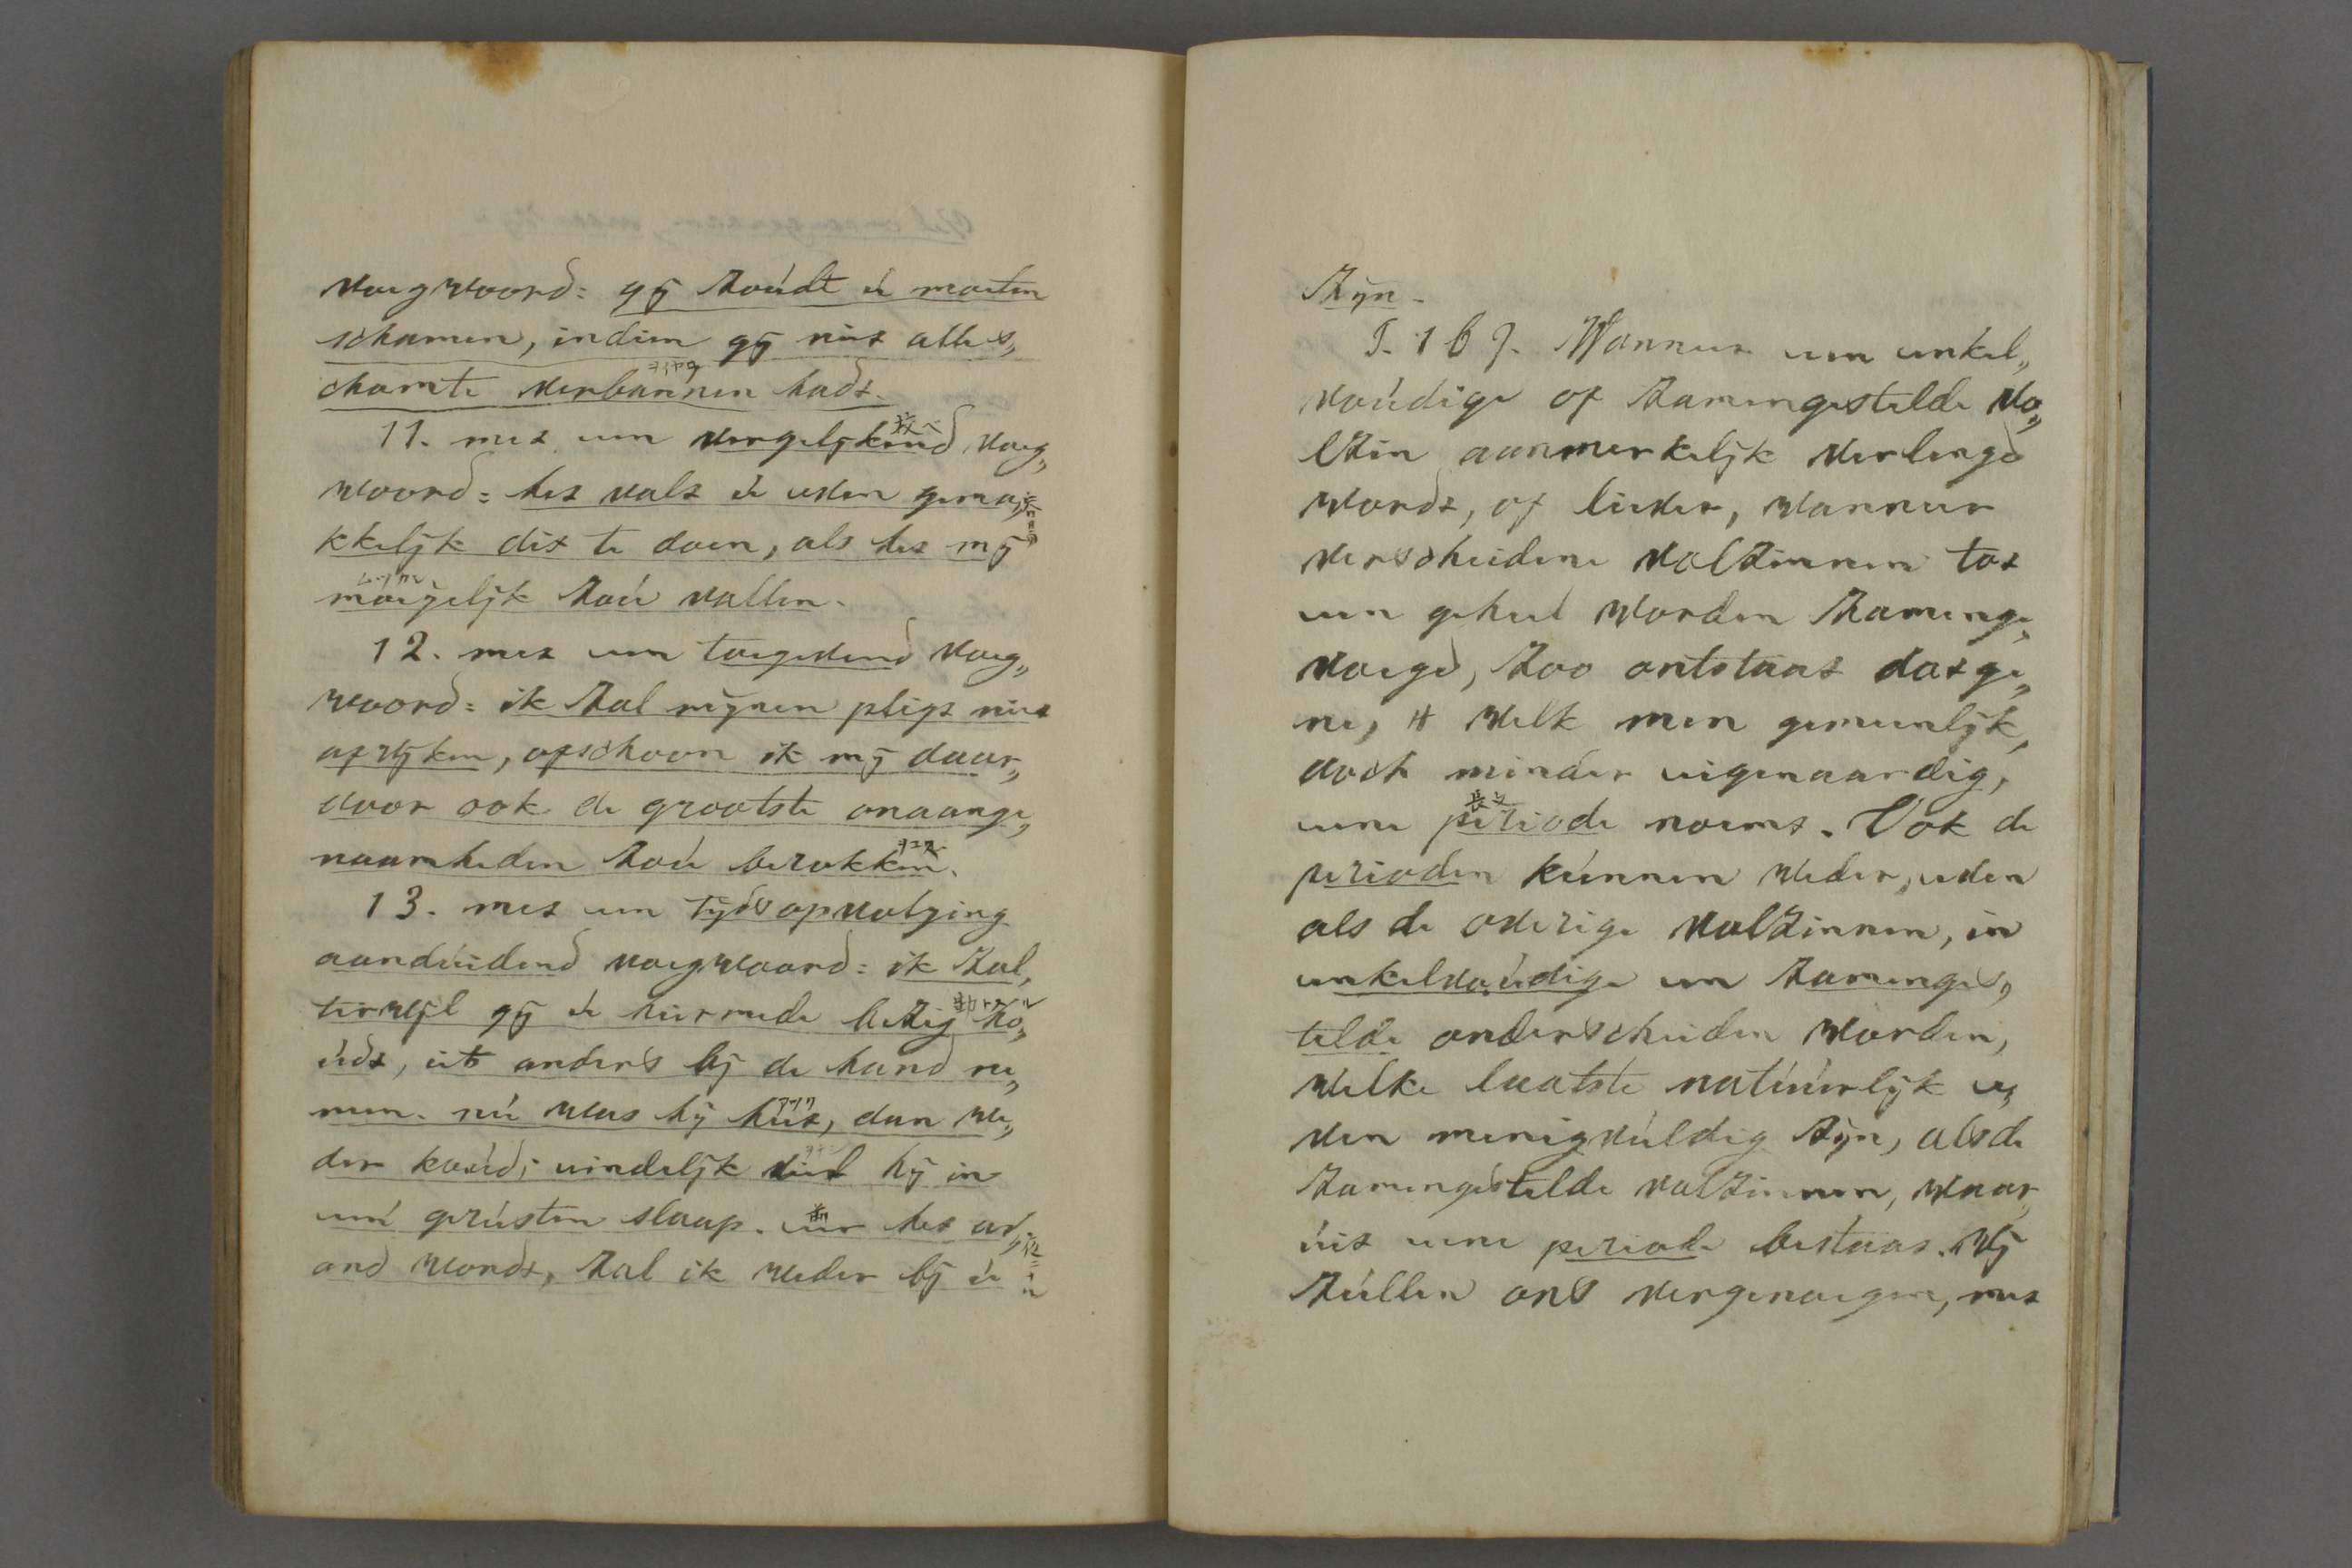 voegwoord: gij zoúdt ú moeten
schamen, indien gij niet alle s„
chamte verbannen hadt.
11. met een vergelijkend voeg„
woord: het valt ú even gema„
kkelijk dit te doen, als het mij
moeijelijk zoú vallen.
12. met een toegevend voeg„
woord: ik zal mijnen pligt niet
afwijken, ofschoon ik mij daar„
door ook de grootste onaange„
naamheden zoú berokken.
13. met een tijdsopvolging
aandúidend voegwoord: ik zal,
terwijl gij ú hiermede bezig ho„
údt, iets anders bij de hand ne„
men. nú was hij heet, dan we„
der koúd; eindelijk viel hij in
een gerústen slaap. eer het av„
ond wordt, zal ik weder bij ú
zijn.
§. 167. Wanneer een enkel„
voúdige of zamengestelde vo„
lzin aanmerkelijk verlengd
wordt, of liever, wanneer
verscheidene volzinnen tot
een geheel worden zamenge„
voegd, zoo ontstaat datge„
ne, 't welk men gemeenlijk,
doch minder eigenaardig,
eene periode noemt. Ook de
perioden kúnnen weder, even
als de overige volzinnen, in
enkelvoúdige en zamenges„
telde onderscheiden worden,
welke laatste natúúrlijk e„
ven menigvúldig zijn, als de
zamengestelde volzinnen, waar„
úit eene periode bestaat. Wij
zúllen ons vergenoegen, met